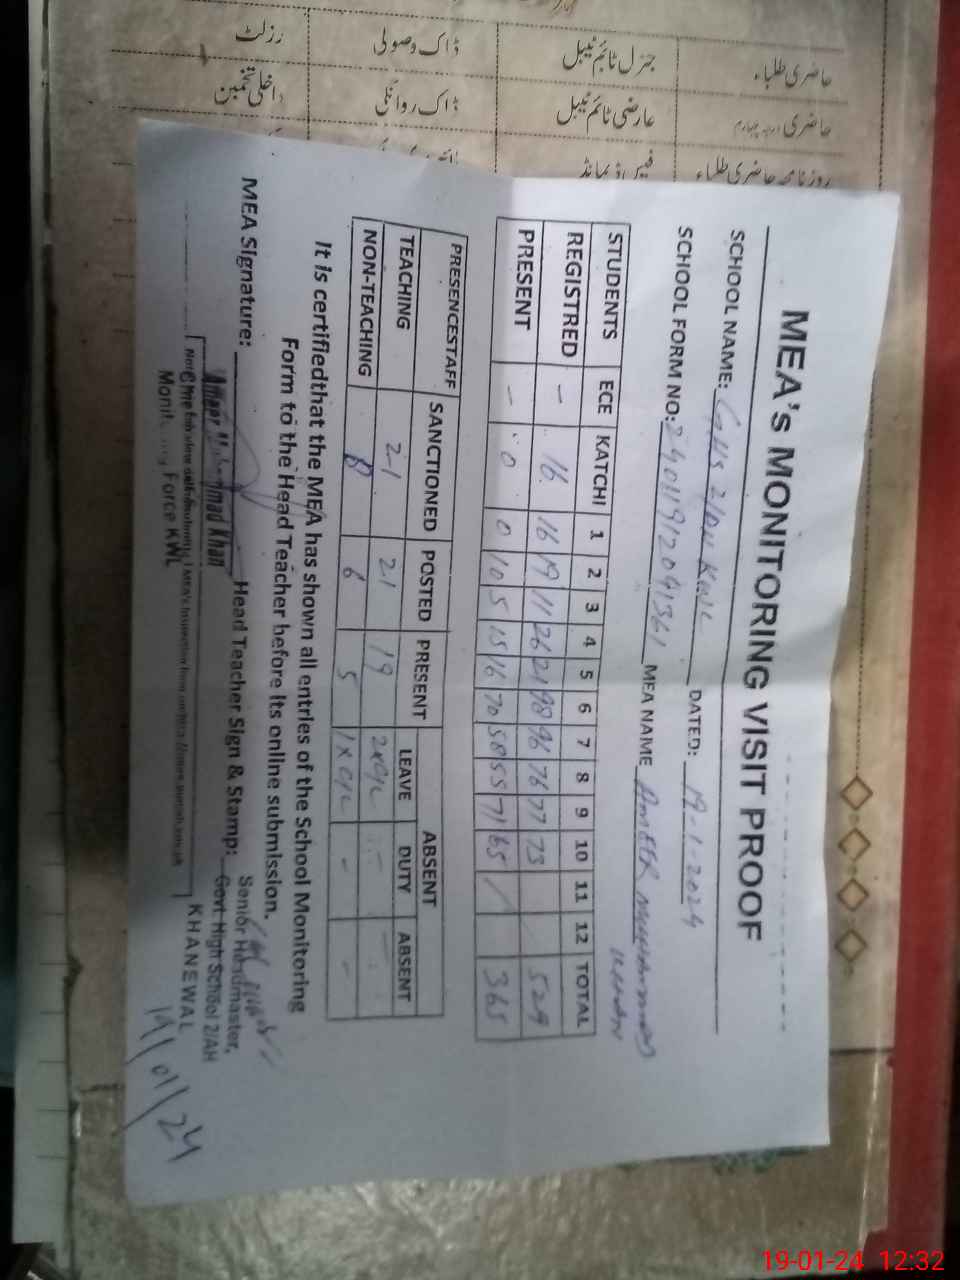 رزلٹ ڈاک وصولی جنرل ٹائم ٹیبل حاضری طلباء
ڈاک روانگی عارضی ٹائم ٹیبل حاضری
حاضری طلباء
MEA's MONITORING VISIT PROOF
SCHOOL NAME: GHS 2/AH KWL DATED: 19-1-2024
SCHOOL FORM NO: MEA NAME AMEER MUHAMMAD
KHAN
STUDENTS ECE KATCHI 1 2 3 4 5 6 7 8 9 10 11 12 TOTAL
REGISTRED - 16 16 19 11 26 21 98 96 76 77 73 529
PRESENT - 0 0 10 5 15 16 70 58 55 71 65 / 365
PRESENCESTAFF SANCTIONED POSTED PRESENT ABSENT
LEAVE DUTY ABSENT
TEACHING 21 21 19 2xC/L - -
NON-TEACHING 8 6 5 1xC/L - -
It is certifiedthat the MEA has shown all entries of the School Monitoring
Form to the Head Teacher before its online submission.
MEA Signature: Head Teacher Sign & Stamp:
Ameer Muhammad Khan
Force KWL
Senior Headmaster,
Govt. High School 2/AH
KHANEWAL
19/01/24
19-01-24 12:32